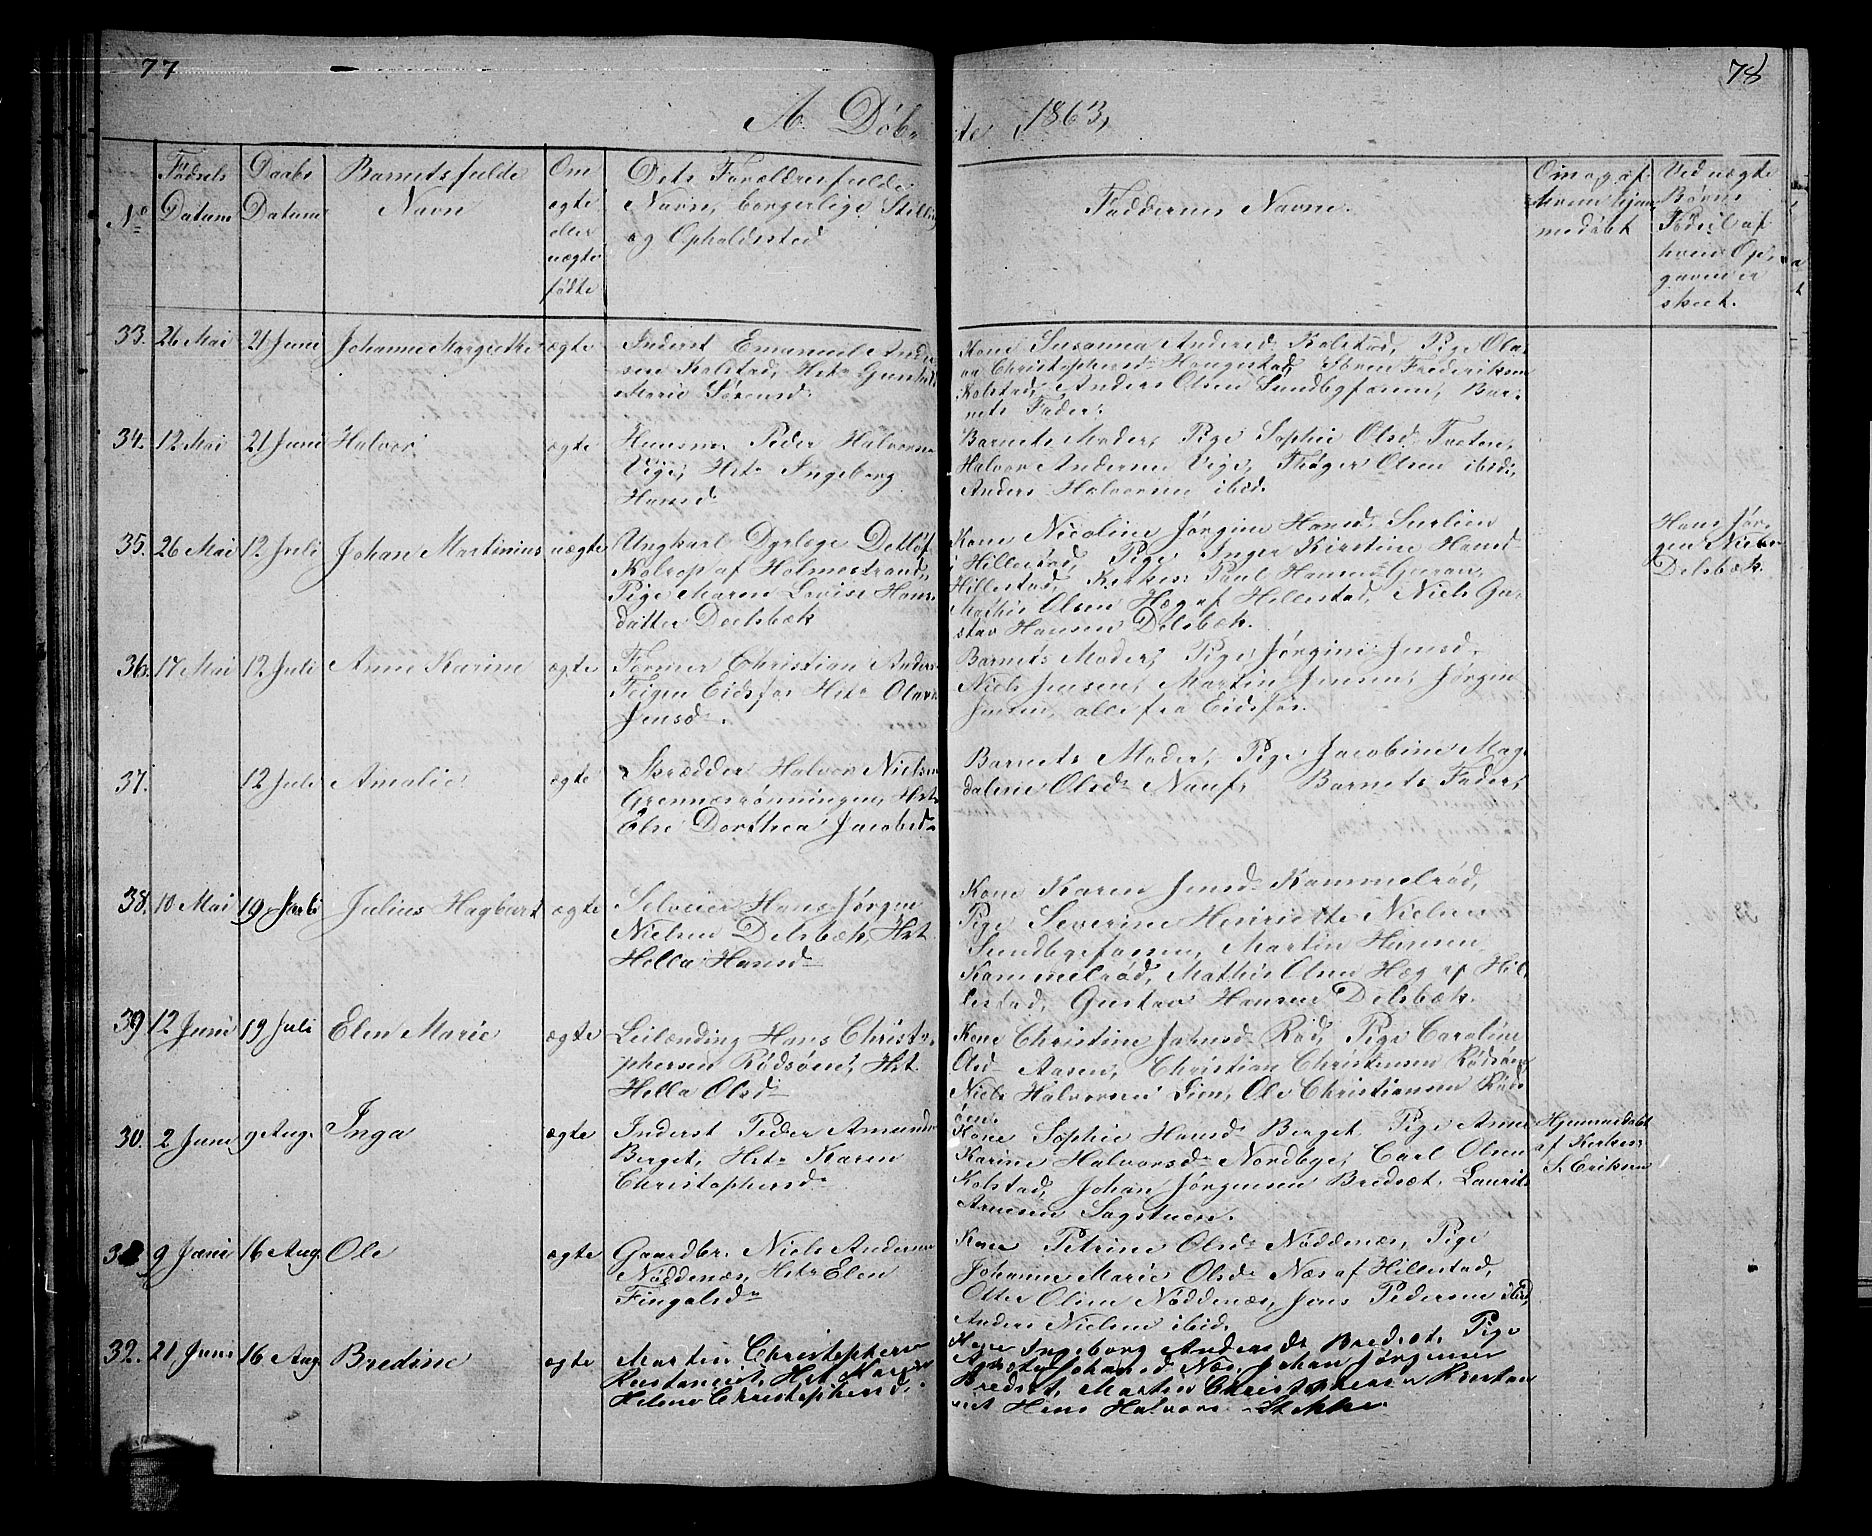 77
78
A. Døb-
te i 1863,
No
Fødsels
Datum
Daabs
Datum
Barnets fulde
Navn
Om
ægte
eller
uægte
fødte
Dets Forældres fulde
Navn, borgerlige Still.
og Opholdssted
Faddernes Navne.
Om og af
hvem hjem-
medøbt
Ved uægte
Børns
Fader & af
hvem Op-
gaven er
skeet.
33. 26 Mai 21 Juni Johanne Margrethe ægte
Inderst Emanuel Ander-
sen Kolstad, Hstr Gunhild
Marie Sørensd.
Kone Susanna Andersd Kolstad, Pige Ola-
va Christophersd Haugestad, Søren Frederiksen
Kolstad, Anders Olsen Sundbyfossen, Bar-
nets Fader.
34. 12 Mai 21 Juni Halvor ægte
Husm. Peder Halvorsen
Vige, Hstr Ingeborg
Hansd
Barnets Moder, Pige Sophie Olsd Tveten,
Halvor Andersen Vige, Thøger Olsen ibid,
Anders Halvorsen ibid.
35. 26 Mai 12 Juli Johan Martinius uægte
Ungkarl Dyrlæge Detlof
Kolrop af Holmestrand,
Pige Maren Lovise Hans-
datter Doelsbæk
Kone Nicoline Jørgine Hansd
i Hillestad, Pige Inger Kirstine Hansd
Hillestad, Kirkes. Paul Hansen
Mathis Olsen Hæg af Hillestad, Niels Gu-
stav Hansen Delsbæk.
Hans Jør-
gen Nielsen
Delsbæk
36. 17 Mai 12 Juli Anne Karine ægte
Former Christian Anders.
Teigen Eidsfos Hstr Olava
Jensd.
Barnets Moder, Pige Jørgine Jensd
Niels Jensen, Martin Jensen, Jørgen
Jensen, alle fra Eidsfos.
37. 12 Juli Amalie ægte
Skrædder Halvor Nielsen
Grennesrønningen, Hstr
Else Dorthea Jacobsd
Barnets Moder, Pige Jacobine Mag-
dalene Olsd Nauf, Barnets Fader,
38. 10 Mai 19 Juli Julius Hagbart ægte
Selveier Hans Jørgen
Nielsen Delsbæk, Hst
Hella Hansd
Kone Karen Jensd Kammelrød,
Pige Severine Henriette Nielsen
Sundbyfossen, Martin Hansen
Kammelrød, Mathis Olsen Hæg af Hil-
lestad, Gustav Hansen Delsbæk.
39 12 Juni 19 Juli Elen Marie ægte
Leilænding Hans Christo-
phersen Rødsøen, Hst
Hella Olsd
Kone Christine Johnsd Rød, Pige Caroline
Olsd Aasen, Christian Christensen Rødsøen
Niels Halvorsen Lien, Ole Christiansen Røds-
øen
30. 2 Juni 9 Aug. Inga ægte
Inderst Peder Amunds
Berget, Hstr Karen
Christophersd
Kone Sophie Hansd Berget, Pige Anne
Karine Halvorsd Nordbye, Carl Olsen
Kolstad, Johan Jørgensen Bredsæt, Laurits
Arnesen Sagstuen.
Hjemmedøbt
af Kirkes.
S. Eriksen
32 9 Juni 16 Aug. Ole ægte
Gaardbr. Niels Andersen
Nøddenæs, Hstr Elen
Fingalsd
Kone Petrine Olsd Nøddenæs, Pige
Johanne Marie Olsd Næs af Hillestad,
Otter Olsen Nøddenæs, Jens Pedersen ibid,
Anders Nielsen ibid.
32. 21 Juni 16 Aug Bredine ægte
Martin Christophersen
Hst Karen
Helene Christophersd.
Kone Ingeborg Andersd Bredsæt, Pige
Johansd Næs, Johan Jørgensen
Bredset, Martin Christophersen
Hans Halvors. Stokke